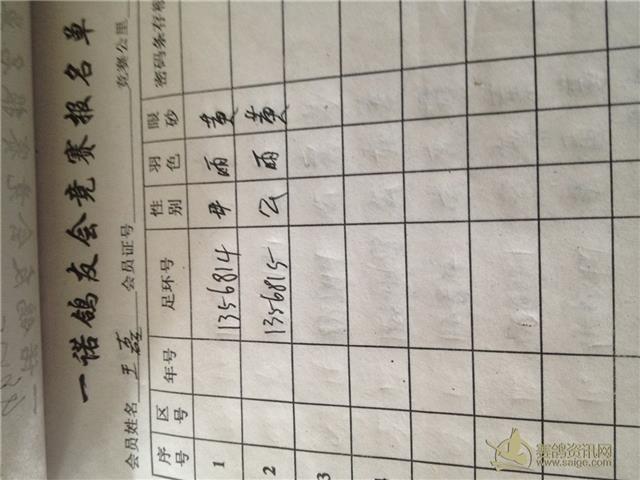 一诺鸽友会竞赛报名单
会员姓名 王磊 会员证号 竞赛公里
序号 区号 年号 足环号 性别 羽色 眼砂 密码条存根
1 1356814 母 雨 黄
2 1356815 公 雨 黄
3
赛鸽资讯网
www.saige.com